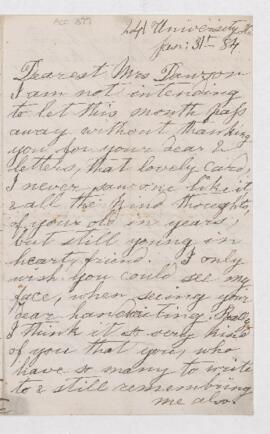 241 University St
Jan: 31st 84
Dearest Mrs Dawson
I am not intending
to let this month pass
away without thanking
you for your dear 2
letters, that lovely card,
I never saw one like it,
& all the kind thoughts,
of your old in years,
but still young in
heart, friend. I only
wish you could see my
face, when seeing your
dear handwriting. Really
I think it so very kind
of you that you, who
have so many to write
to & still remembering
me also.